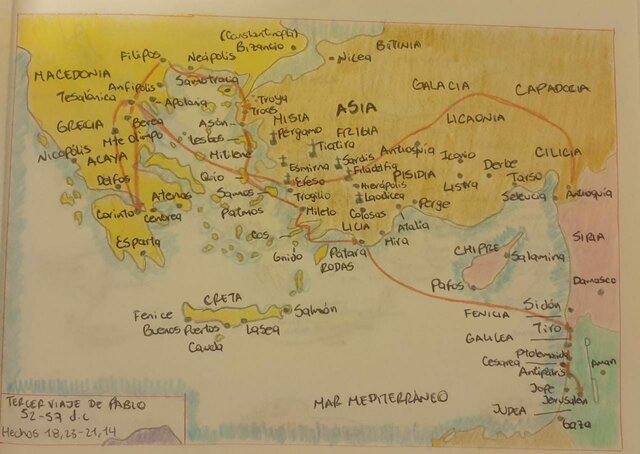 (Constantinopla)
Bizancio
BITINIA
Nicea
Filipos
Neápolis
Samotracia
MACEDONIA
Anfípolis
Tesalónica
Apolonia
Troya
Troas
GALACIA
CAPADOCIA
ASIA
MISIA
LICAONIA
Berea
Asón
Pérgamo
FRIGIA
GRECIA
Mte Olimpo
Lesbos
Tiatira
Antioquía
CILICIA
Nicópolis
ACAYA
Mitilene
Esmirna
Sardis
Filadelfia
PISIDIA
Iconio
Derbe
Tarso
Delfos
Quio
Éfeso
Hierápolis
Listra
Seleucia
Antioquía
Atenas
Samos
Trogilio
Laodicea
Corinto
Cencrea
Patmos
Mileto
Colosas
Perge
LICIA
Atalia
Mira
SIRIA
Esparta
Cos
Gnido
Pátara
RODAS
CHIPRE
Salamina
Pafos
Damasco
CRETA
Fenice
Salmón
Buenos Puertos
Lasea
Cauda
Sidón
FENICIA
Tiro
GALILEA
Ptolemaida
Cesarea
Antípatris
Aman
Jope
Jerusalén
JUDEA
Gaza
MAR MEDITERRÁNEO
TERCER VIAJE DE PABLO
52-57 d.C
Hechos 18,23-21,14